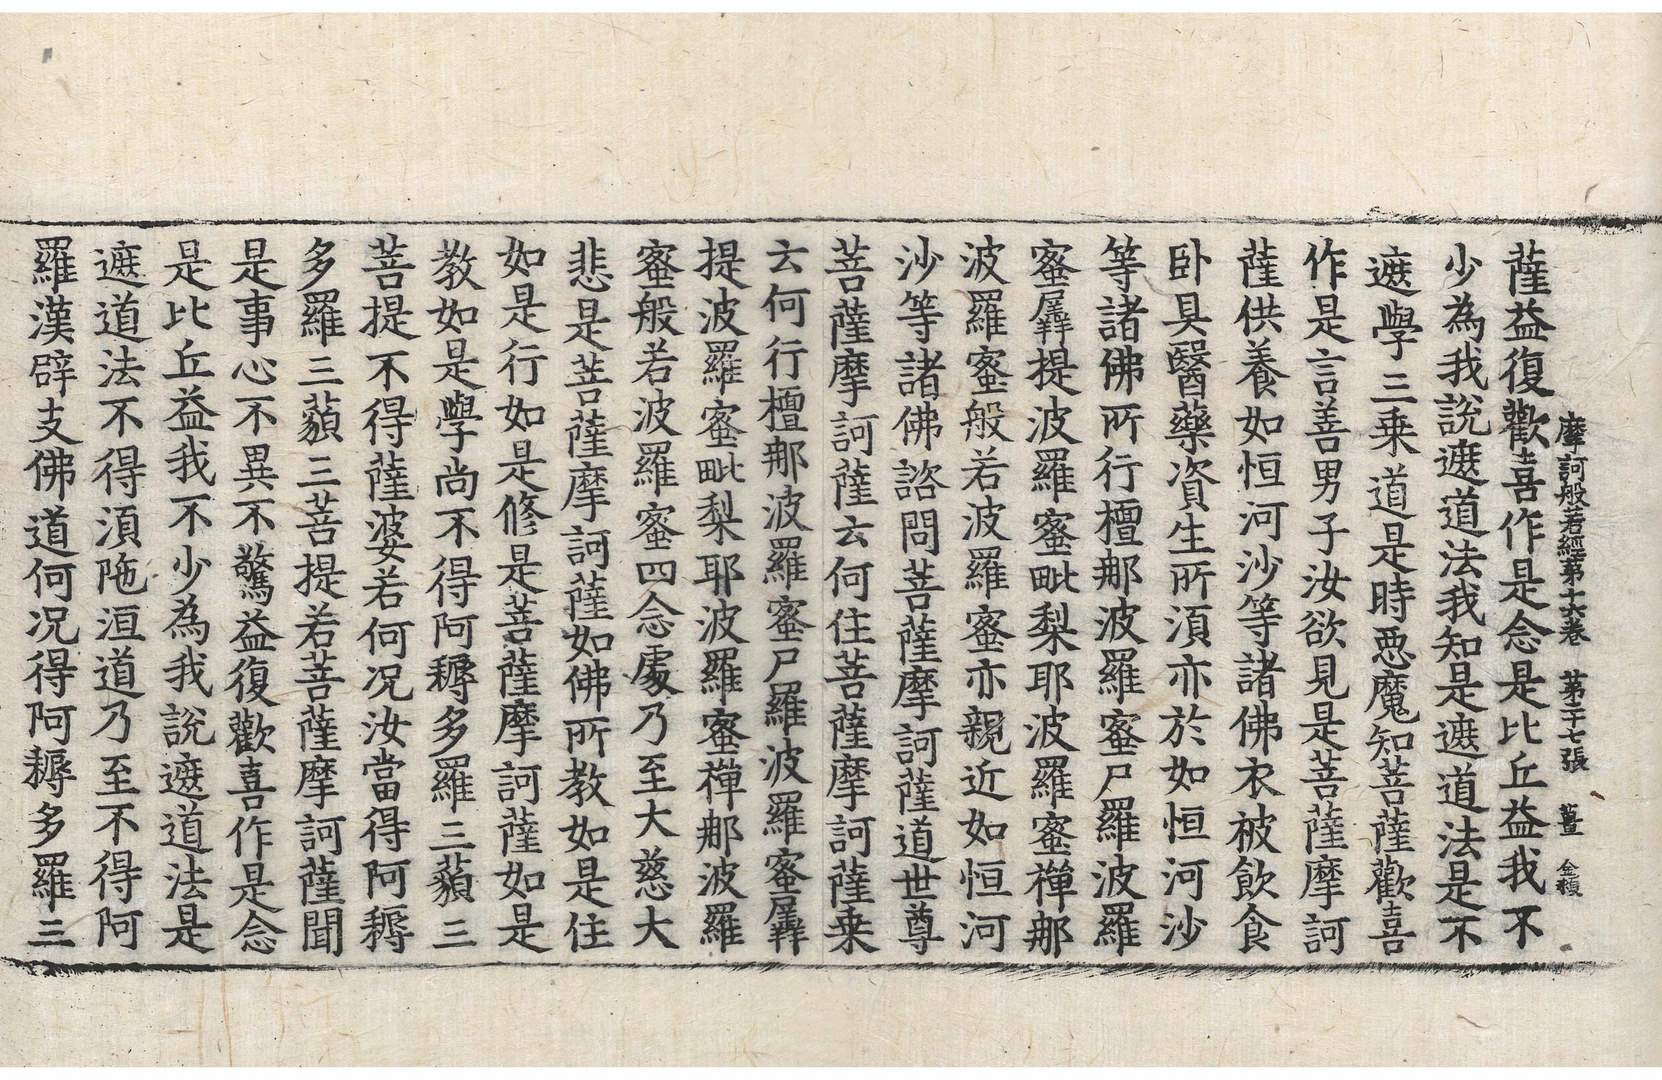 摩訶般若經第十六卷 第二十七張 薑 金頛
薩益復歡喜作是念是比丘益我不
少為我說遮道法我知是遮道法是不
遮學三乗道是時惡魔知菩薩歡喜
作是言善男子汝欲見是菩薩摩訶
薩供養如恒河沙等諸佛衣被飲食
卧具醫藥資生所湏亦於如恒河沙
等諸佛所行檀那波羅蜜尸羅波羅
蜜羼提波羅蜜毗梨耶波羅蜜禪那
波羅蜜般若波羅蜜亦親近如恒河
沙等諸佛諮問菩薩摩訶薩道世尊
菩薩摩訶薩云何住菩薩摩訶薩乗
云何行檀那波羅蜜尸羅波羅蜜羼
提波羅蜜毗梨耶波羅蜜禪那波羅
蜜般若波羅蜜四念處乃至大慈大
悲是菩薩摩訶薩如佛所教如是住
如是行如是修是菩薩摩訶薩如是
教如是學尚不得阿耨多羅三藐三
菩提不得薩婆若何况汝當得阿耨
多羅三藐三菩提若菩薩摩訶薩聞
是事心不異不驚益復歡喜作是念
是比丘益我不少為我說遮道法是
遮道法不得湏陁洹道乃至不得阿
羅漢辟支佛道何况得阿耨多羅三